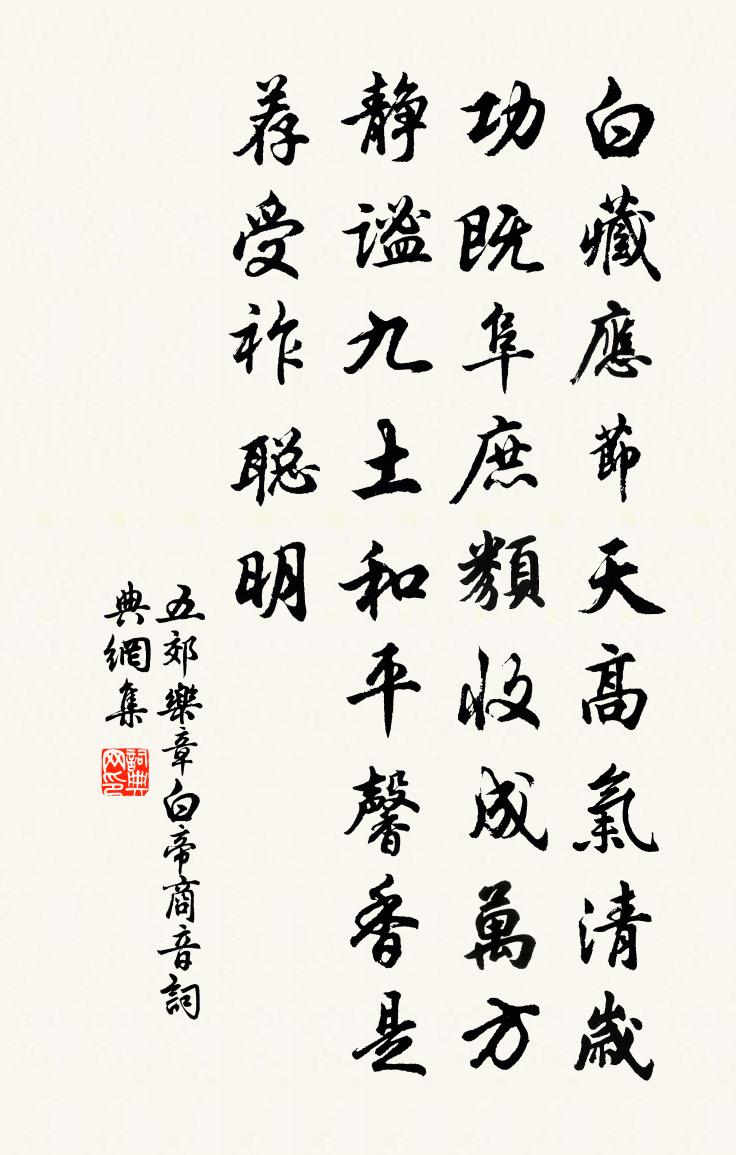 白藏應節天高氣清歲
功既阜庶類收成萬方
静謐九土和平馨香是
荐受祚聪明
五郊樂章白帝商音詞
典網集
詞典网印